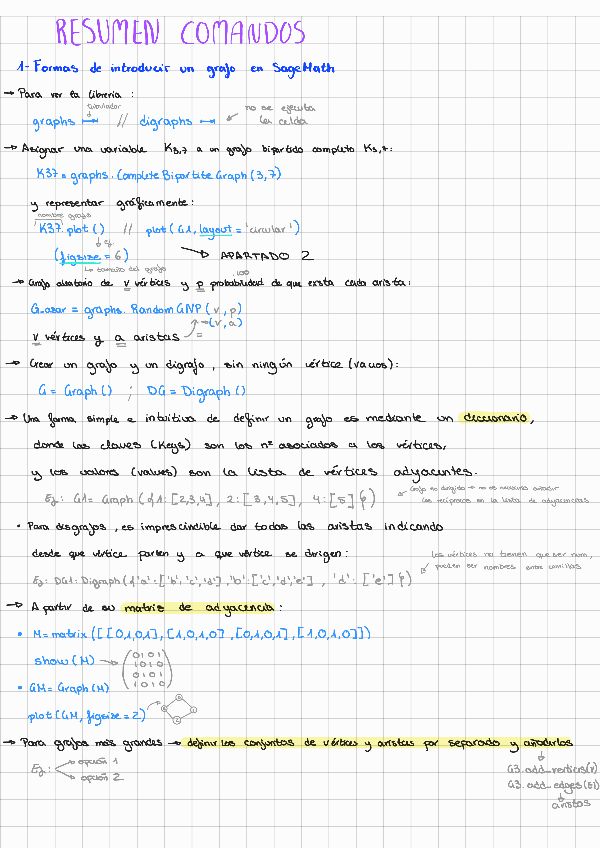 RESUMEN COMANDOS
1- Formas de introducir un grafo en SageMath
→ Para ver la libreria :
tabulador
graphs ↦ // digraphs ↦ no se ejecuta
la celda
→ Asignar una variable K3,7 a un grafo bipartido completo K3,7:
K37 = graphs. Complete Bipartite Graph (3,7)
y representar gráficamente:
nombre grafo
K37. plot () // plot (G1, layout = 'circular')
(figsize = 6) → APARTADO 2
↳ tamaño del grafo
→ Grafo aleatorio de v vértices y p probabilidad de que exista cada arista:
G_azar = graphs. RandomGNP (v, p)
→(v,a)
v vértices y a aristas
→ Crear un grafo y un digrafo, sin ningún vértice (vacios):
G = Graph () ; DG = Digraph ()
→ Una forma simple e intuitiva de definir un grafo es mediante un diccionario,
donde las claves (Keys) son los nº asociados a los vértices,
y los valores (values) son la lista de vértices adyacentes.
Ej: G1 = Graph ({1:[2,3,4], 2:[3,4,5], 4:[5]})
Grafo no dirigido → no es necesario añadir
los recíprocos en la lista de adyacencias
• Para disgrafos, es imprescindible dar todas las aristas indicando
desde que vértice parten y a que vértice se dirigen:
los vértices no tienen que ser num,
pueden ser nombres entre comillas
Ej: DG1: Digraph ({'a':['b','c','d'], 'b':['c','d','e'], 'd':['e']})
→ A partir de su matriz de adyacencia :
• M = matrix ([[0,1,0,1], [1,0,1,0], [0,1,0,1], [1,0,1,0]])
show (M) → (0 1 0 1
1 0 1 0
0 1 0 1
1 0 1 0)
• GM = Graph (M)
plot (GM, figsize = 2)
→ Para grafos más grandes → definir los conjuntos de vértices y aristas por separado y añadirlos
Ej: opción 1
opción 2
G3.add_vertices(V)
G3.add_edges(E1)
aristas